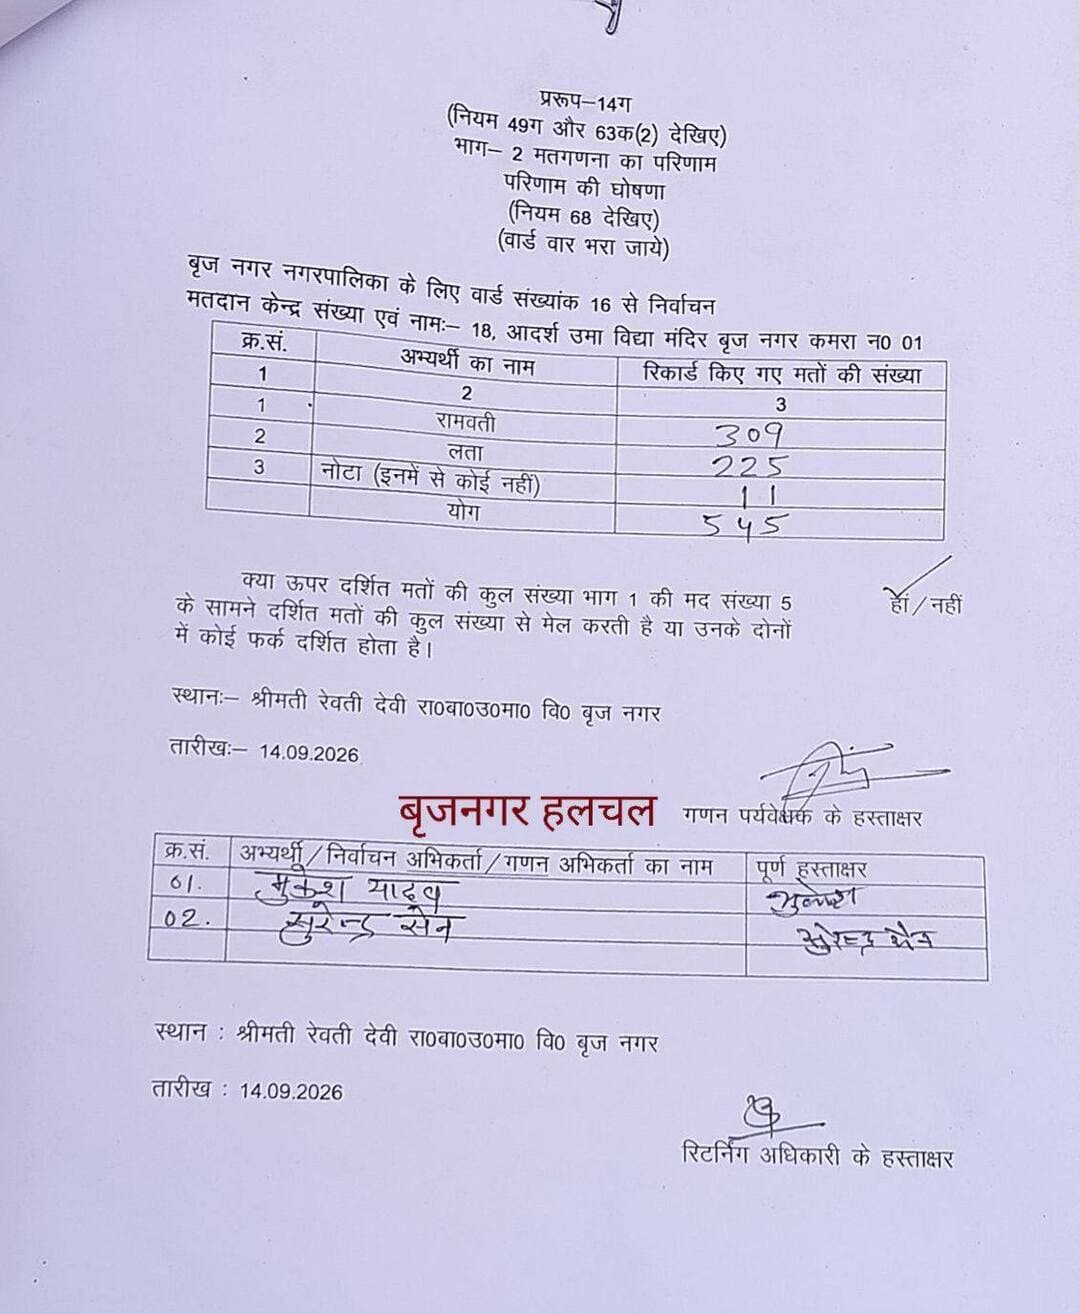 प्ररूप–14ग
(नियम 49ग और 63क(2) देखिए)
भाग– 2 मतगणना का परिणाम
परिणाम की घोषणा
(नियम 68 देखिए)
(वार्ड वार भरा जाये)
बृज नगर नगरपालिका के लिए वार्ड संख्यांक 16 से निर्वाचन
मतदान केन्द्र संख्या एवं नामः– 18, आदर्श उमा विद्या मंदिर बृज नगर कमरा न0 01
क्र.सं. अभ्यर्थी का नाम रिकार्ड किए गए मतों की संख्या
1 2 3
1 रामवती 309
2 लता 225
3 नोटा (इनमें से कोई नहीं) 11
योग 545
क्या ऊपर दर्शित मतों की कुल संख्या भाग 1 की मद संख्या 5 हॉ/नहीं
के सामने दर्शित मतों की कुल संख्या से मेल करती है या उनके दोनों
में कोई फर्क दर्शित होता है।
स्थानः– श्रीमती रेवती देवी रा0बा0उ0मा0 वि0 बृज नगर
तारीखः– 14.09.2026
बृजनगर हलचल
गणन पर्यवेक्षक के हस्ताक्षर
क्र.सं. अभ्यर्थी/निर्वाचन अभिकर्ता/गणन अभिकर्ता का नाम पूर्ण हस्ताक्षर
01. मुकेश यादव मुकेश
02. सुरेन्द्र सेन सुरेन्द्र सैन
स्थान : श्रीमती रेवती देवी रा0बा0उ0मा0 वि0 बृज नगर
तारीख : 14.09.2026
रिटर्निंग अधिकारी के हस्ताक्षर